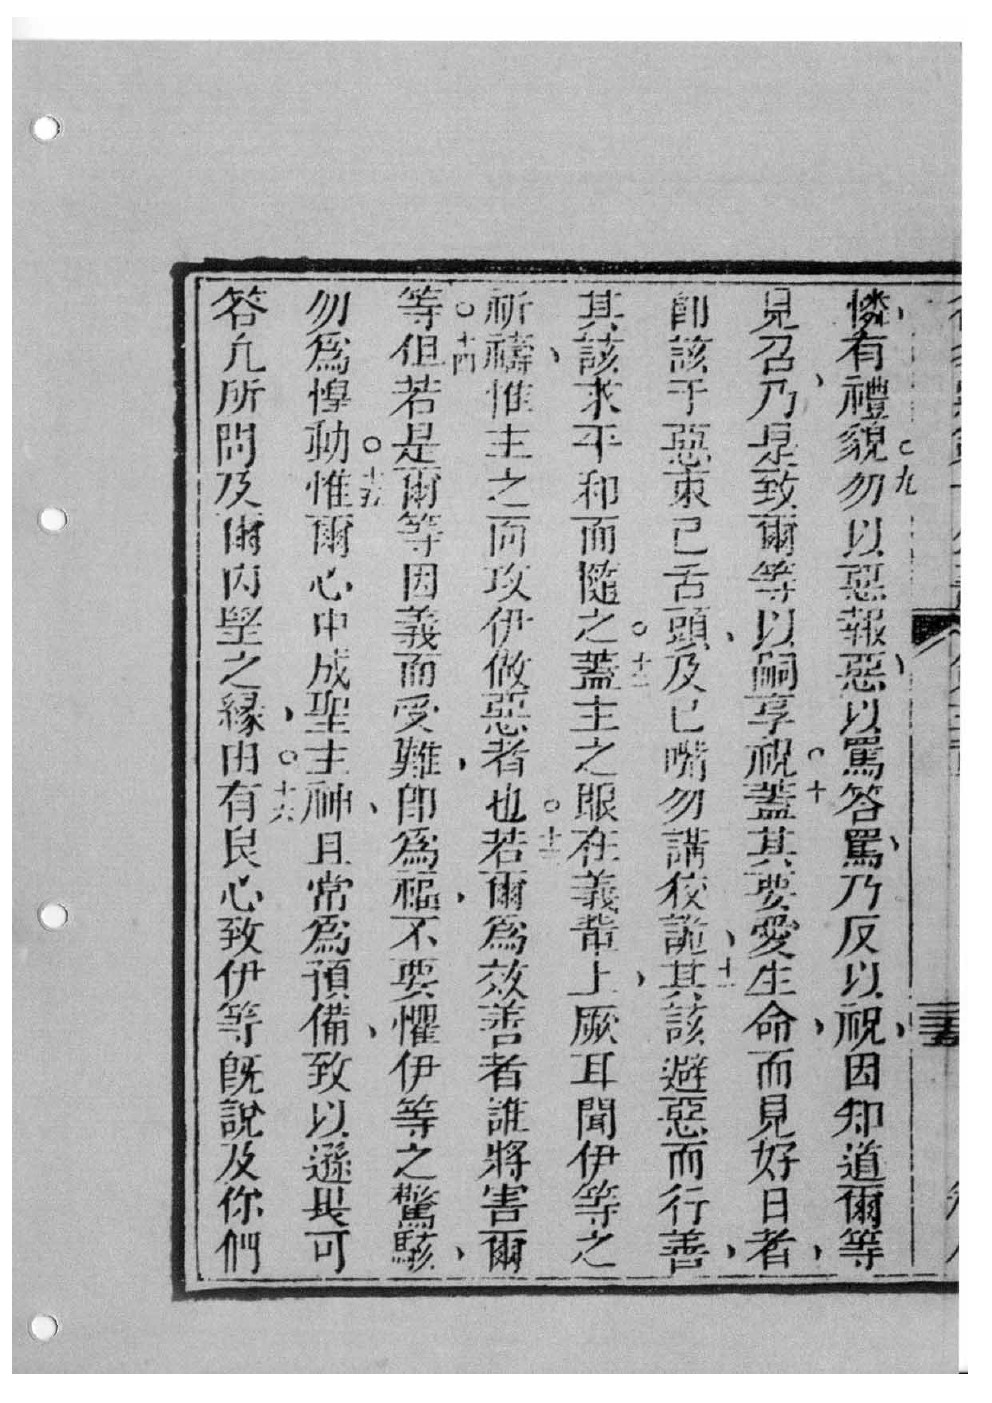 憐、有禮貌○九勿以惡報惡、以罵答罵、乃反以祝、因知道爾等
見召、乃是致爾等以嗣享祝○十蓋其要愛生命、而見好日者、
即該于惡束己舌頭、及己嘴勿講狡詭、○十一其該避惡而行善、
其該求平和而隨之○十二蓋主之眼在義輩上、厥耳聞伊等之
祈禱、惟主之面攻伊做惡者也○十三若爾為效善者誰將害爾
等○十四但若是爾等因義而受難、即為福、不要懼伊等之驚駭、
勿為惶動○十五惟爾心中成聖主神、且常為預備、致以遜畏可
答凢所問及爾內望之緣、由○十六有良心致伊等既說及你們